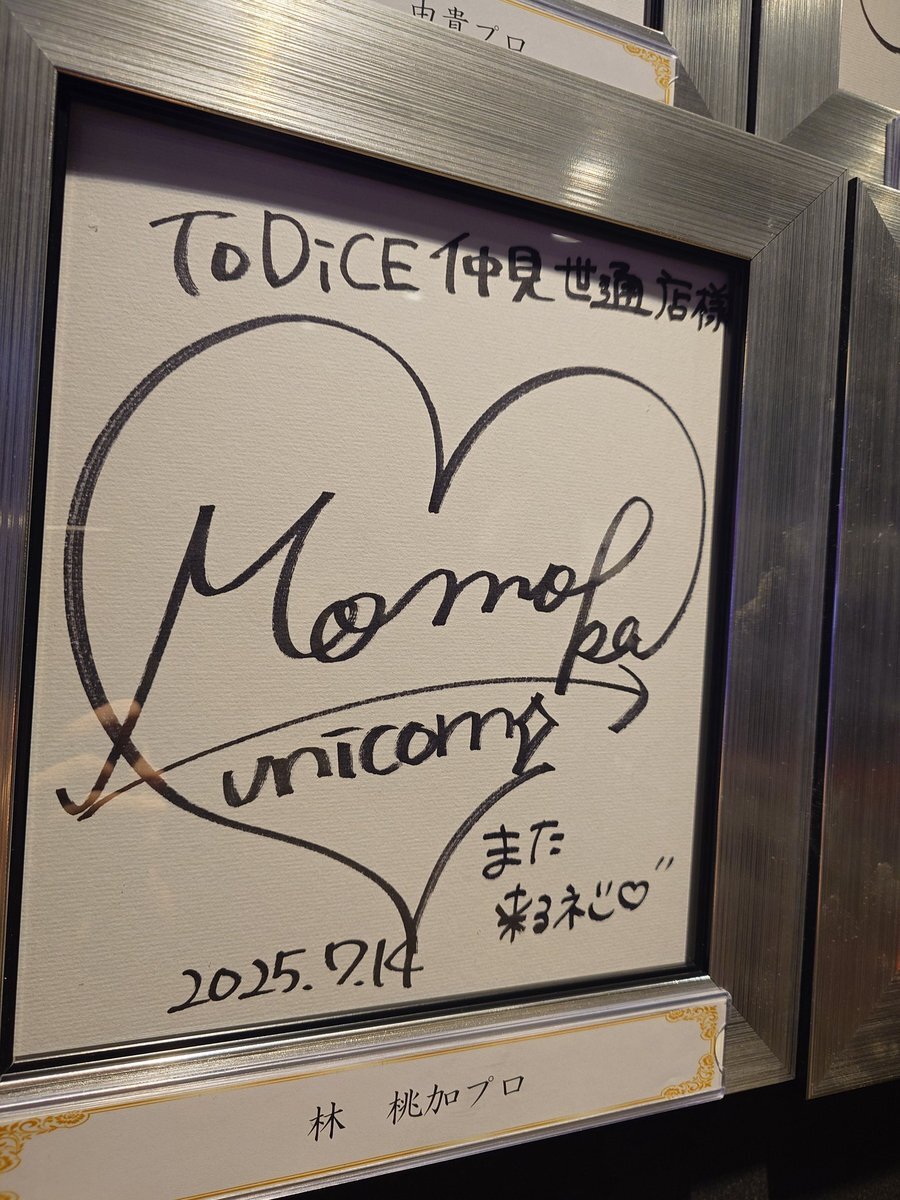 由貴プロ
To DiCE 仲見世通店様
Momoka
unicorn
また
来るネ♡"
2025.7.14
林 桃加プロ